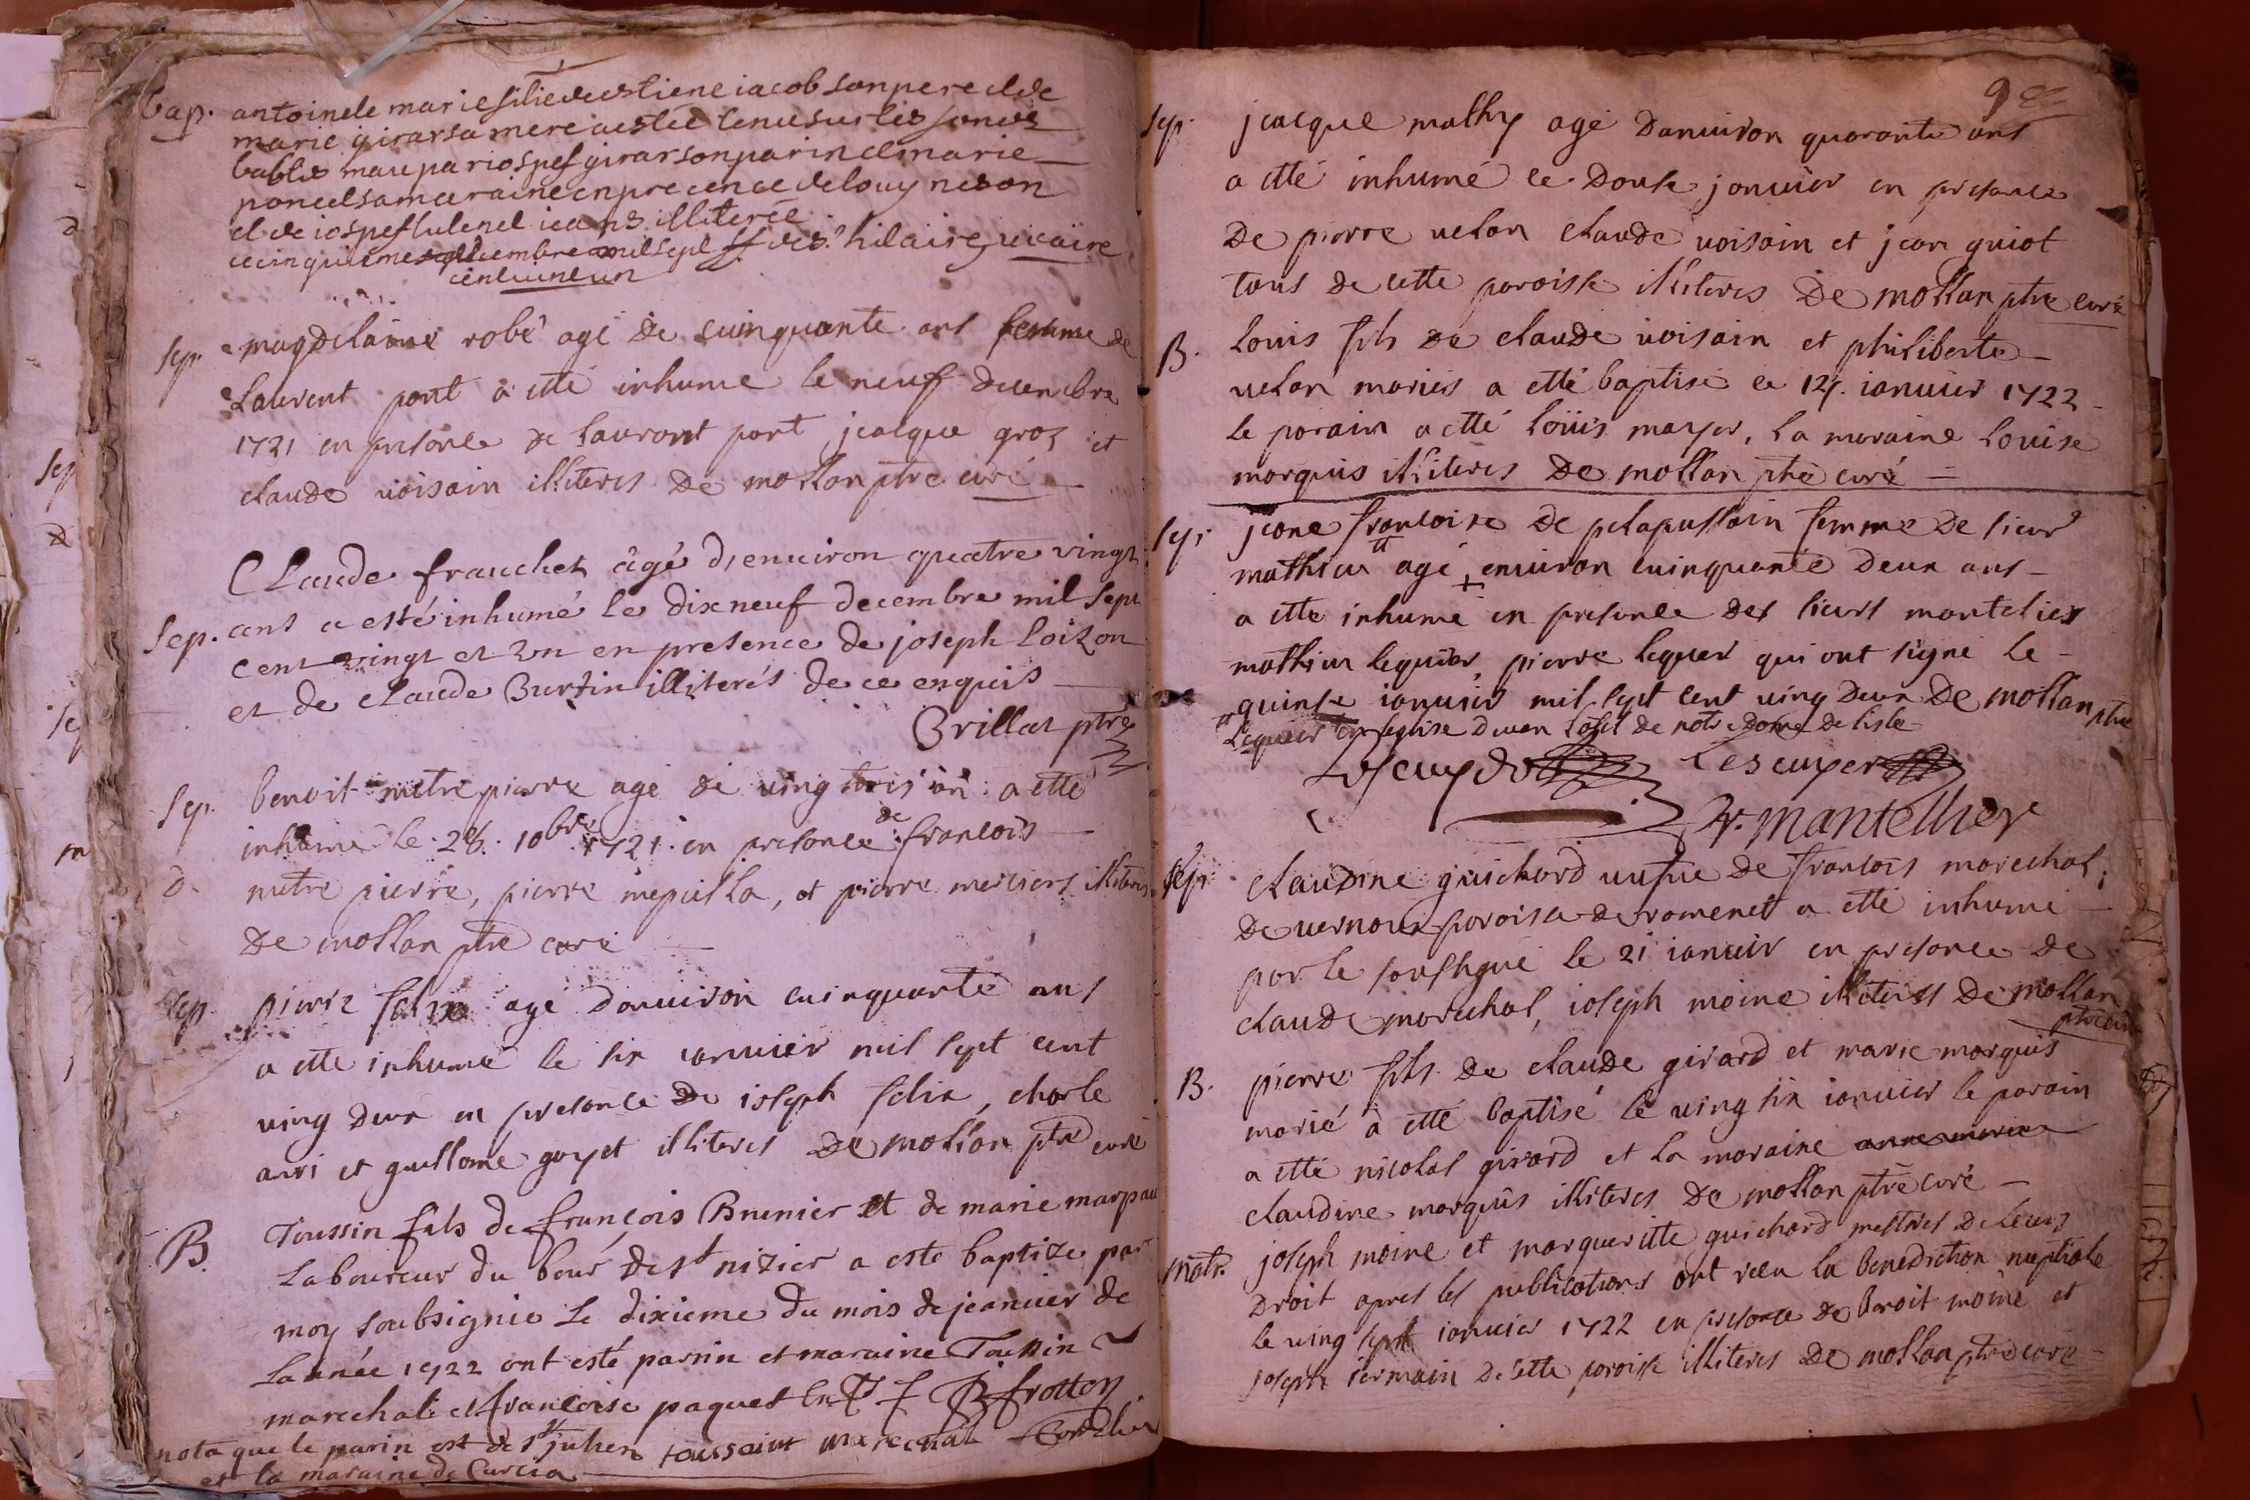 bap. antoinele marie filie de estiene iacob son pere et de
marie girar sa mere a esteé tenue sur les fonds
par iospef girar son parin et marie
poncet sa maraine en precence de louy
et de iospef illiterée
ce cinquieme decembre mil sept f. de st hilaire vicaire
cent vint un
sep. magdelaine robé agé de cuinquante ans femme de
Laurent pont a etté inhumé le neuf decembre
1721 en presance de laurant pont jacque gros et
claude voisain illiteres De mollan ptre curé
CLaude frauchet âgé d'enuiron quatre vingt
sep. ans a esté inhumé le dix neuf decembre mil sept
cent vingt et un en presence de joseph loizon
et de claude Burtin illiterés de ce enquis
Brillat ptre
sep. benoit metre pierre agé de ving trois an a etté
inhumé le 28. 10bre 1721. en presance de francois
metre pierre, pierre mepilla, et pierre merciers illiteres
De mollan ptre curé
sep. pierre felix agé danuiron cuinquante ans
a etté inhumé le six ianuier mil sept cent
ving deux en presance De ioseph felix, charle
anri et guillome goyet illiteres De mollan ptre curé
B. Toussin fils de françois Brunier et de marie marpau
laboureur du bour de st nizier a este baptize par
moy soubsignie le dixieme du mois de jeanuier de
Lannée 1722 ont esté parrin et maraine Toussin
marechal et francoise paquet frotton
nota que le parin est de st julien toussaint marechal Cordelier
et la maraine de Curcia
9e
sep. jacque mathy agé Danuiron quarante ans
a etté inhumé ce Douse januier en presance
De pierre uelon claude uoisain et jean guiot
tous de cette paroisse illiteres De mollan ptre curé
B. Louis fils de claude uoisain et philiberte
uelon mariés a etté baptisé ce 14. ianuier 1722
le parain a etté loüis mayer, la maraine louise
marquis illiteres De mollan ptre curé
sep. jeane francoise de pelapussain femme De sieur
mathieu agé enuiron cuinquante deux ans
a etté inhumé en presance des sieurs mantelier
mathieu lequier, pierre lequer qui ont signé le
quinse ianuier mil sept cent ving deux De mollan ptre
Lequier en leglise deuan lotel de notre dame de lisle
Lescuyer Lescuyer
P. mantellier
sep. claudine guichard uefue de francois marechal
de uernoux paroisse de romenet a etté inhumé
par le soussigné le 21 ianuir en presance de
claude marechal, ioseph moine illiteres De mollan
ptre curé
B. pierre fils de claude girard et marie marquis
marié a etté baptisé le ving six ianuier le parain
a etté nicolas girard et la maraine anne marie
claudine marquis illiteres De mollan ptre curé
matr. joseph moine et margueritte guichard mestres de leurs
Droit apres les publications ont receu la benediction nuptiale
le ving sept ianuier 1722 en presance de benoit moine et
joseph iermain De cette paroisse illiteres De mollan ptre curé